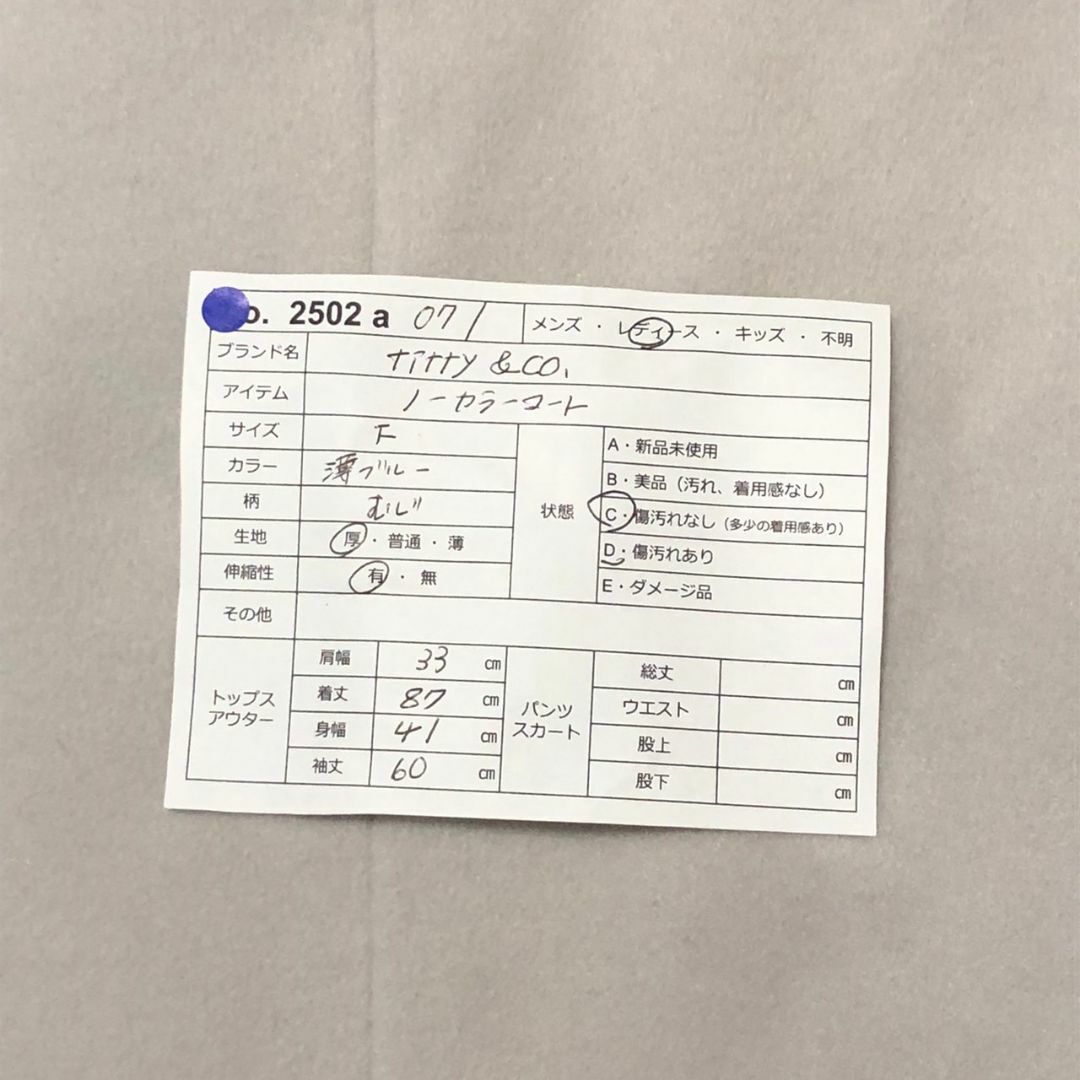 o. 2502 a 071 メンズ ・ レディース ・ キッズ ・ 不明
ブランド名 titty &CO.
アイテム ノーカラーコート
サイズ F
カラー 薄ブルー
柄 むじ
生地 厚 ・ 普通 ・ 薄
伸縮性 有 ・ 無
状態
A・新品未使用
B・美品（汚れ、着用感なし）
C・傷汚れなし（多少の着用感あり）
D・傷汚れあり
E・ダメージ品
その他
トップス
アウター
肩幅 33 cm
着丈 87 cm
身幅 41 cm
袖丈 60 cm
パンツ
スカート
総丈 cm
ウエスト cm
股上 cm
股下 cm